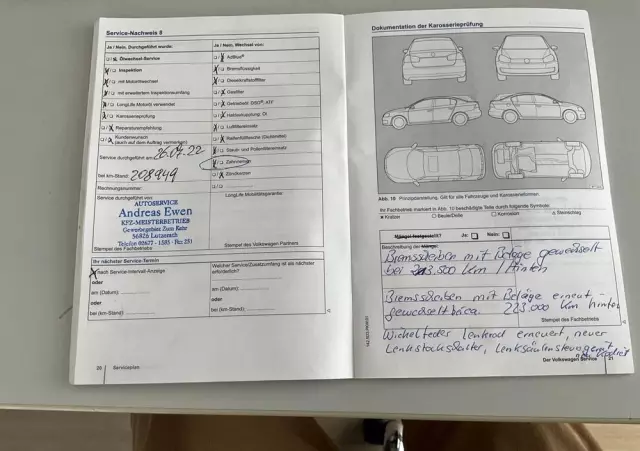 Service-Nachweis 8
Ja / Nein, Durchgeführt wurde:
Ölwechsel-Service
Inspektion
mit Motorölwechsel
mit erweitertem Inspektionsumfang
LongLife Motoröl verwendet
Karosserieprüfung
Reparaturempfehlung
Kundenwunsch
(auch auf dem Auftrag vermerken)
Service durchgeführt am: 26.07.22
bei km-Stand: 208949
Rechnungsnummer:
Service durchgeführt von:
AUTOSERVICE
Andreas Ewen
KFZ-MEISTERBETRIEB
Gewerbegebiet Zum Rehr
56826 Lutzerath
Telefon 02677 - 1585 · Fax 251
Stempel des Fachbetriebs
Ja / Nein, Wechsel von:
AdBlue®
Bremsflüssigkeit
Dieselkraftstofffilter
Gasfilter
Getriebeöl: DSG®, ATF
Haldexkupplung: Öl
Luftfiltereinsatz
Staub- und Pollenfiltereinsatz
Zahnriemen
Zündkerzen
LongLife Mobilitätsgarantie
Stempel des Volkswagen Partners
Ihr nächster Service-Termin
nach Service-Intervall-Anzeige
oder
am (Datum):
oder
bei (km-Stand):
Welcher Service/Zusatzumfang ist als nächster
erforderlich?
am (Datum):
oder
bei (km-Stand):
20 Serviceplan
Dokumentation der Karosserieprüfung
Abb. 10 Prinzipdarstellung. Gilt für alle Fahrzeuge und Karosserieformen.
Ihr Fachbetrieb markiert in Abb. 10 beschädigte Teile durch folgende Symbole:
Kratzer
Beule/Delle
Korrosion
Steinschlag
Mängel festgestellt? Ja: Nein:
Beschreibung der Mängel:
Bremsscheiben mit Beläge gewechselt
bei 213.500 km / Hinten
Bremsscheiben mit Beläge erneut
gewechselt bei ca. 223.000 km hinten
Stempel des Fachbetriebs
Wickelfeder Lenkrad erneuert, neuer
Lenkstockschalter, Lenksäulensteuergerät
Der Volkswagen Service 21